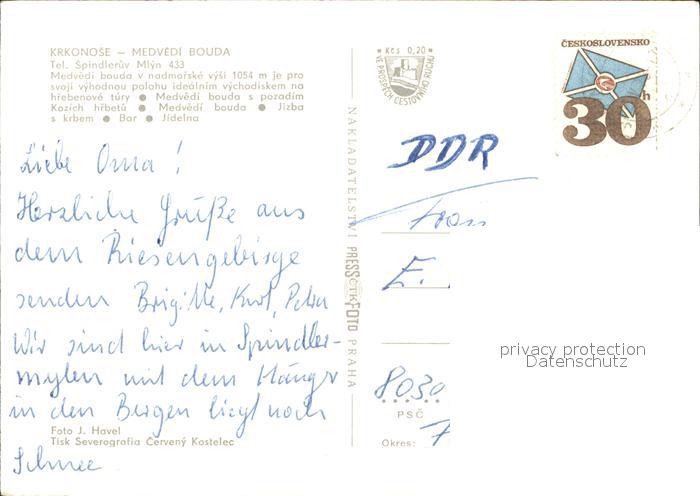 KRKONOŠE – MEDVĚDÍ BOUDA
Tel. Špindlerův Mlýn 433
Medvědí bouda v nadmořské výši 1054 m je pro
svoji výhodnou polohu ideálním východiskem na
hřebenové túry ● Medvědí bouda s pozadím
Kozích hřbetů ● Medvědí bouda ● Jizba
s krbem ● Bar ● Jídelna
Liebe Oma!
Herzliche Grüße aus
dem Riesengebirge
senden Brigitte, Kurt, Petra
Wir sind hier in Spindler-
mylen mit dem Hänger
in den Bergen liegt noch
Schnee
Foto J. Havel
Tisk Severografia Červený Kostelec
NAKLADATELSTVÍ PRESSFOTO PRAHA
ČTK
Kčs 0,20
VE PROSPĚCH CESTOVNÍHO RUCHU
ČESKOSLOVENSKO
30 h
DDR
Frau
E.
8030
PSČ
Okres:
privacy protection
Datenschutz